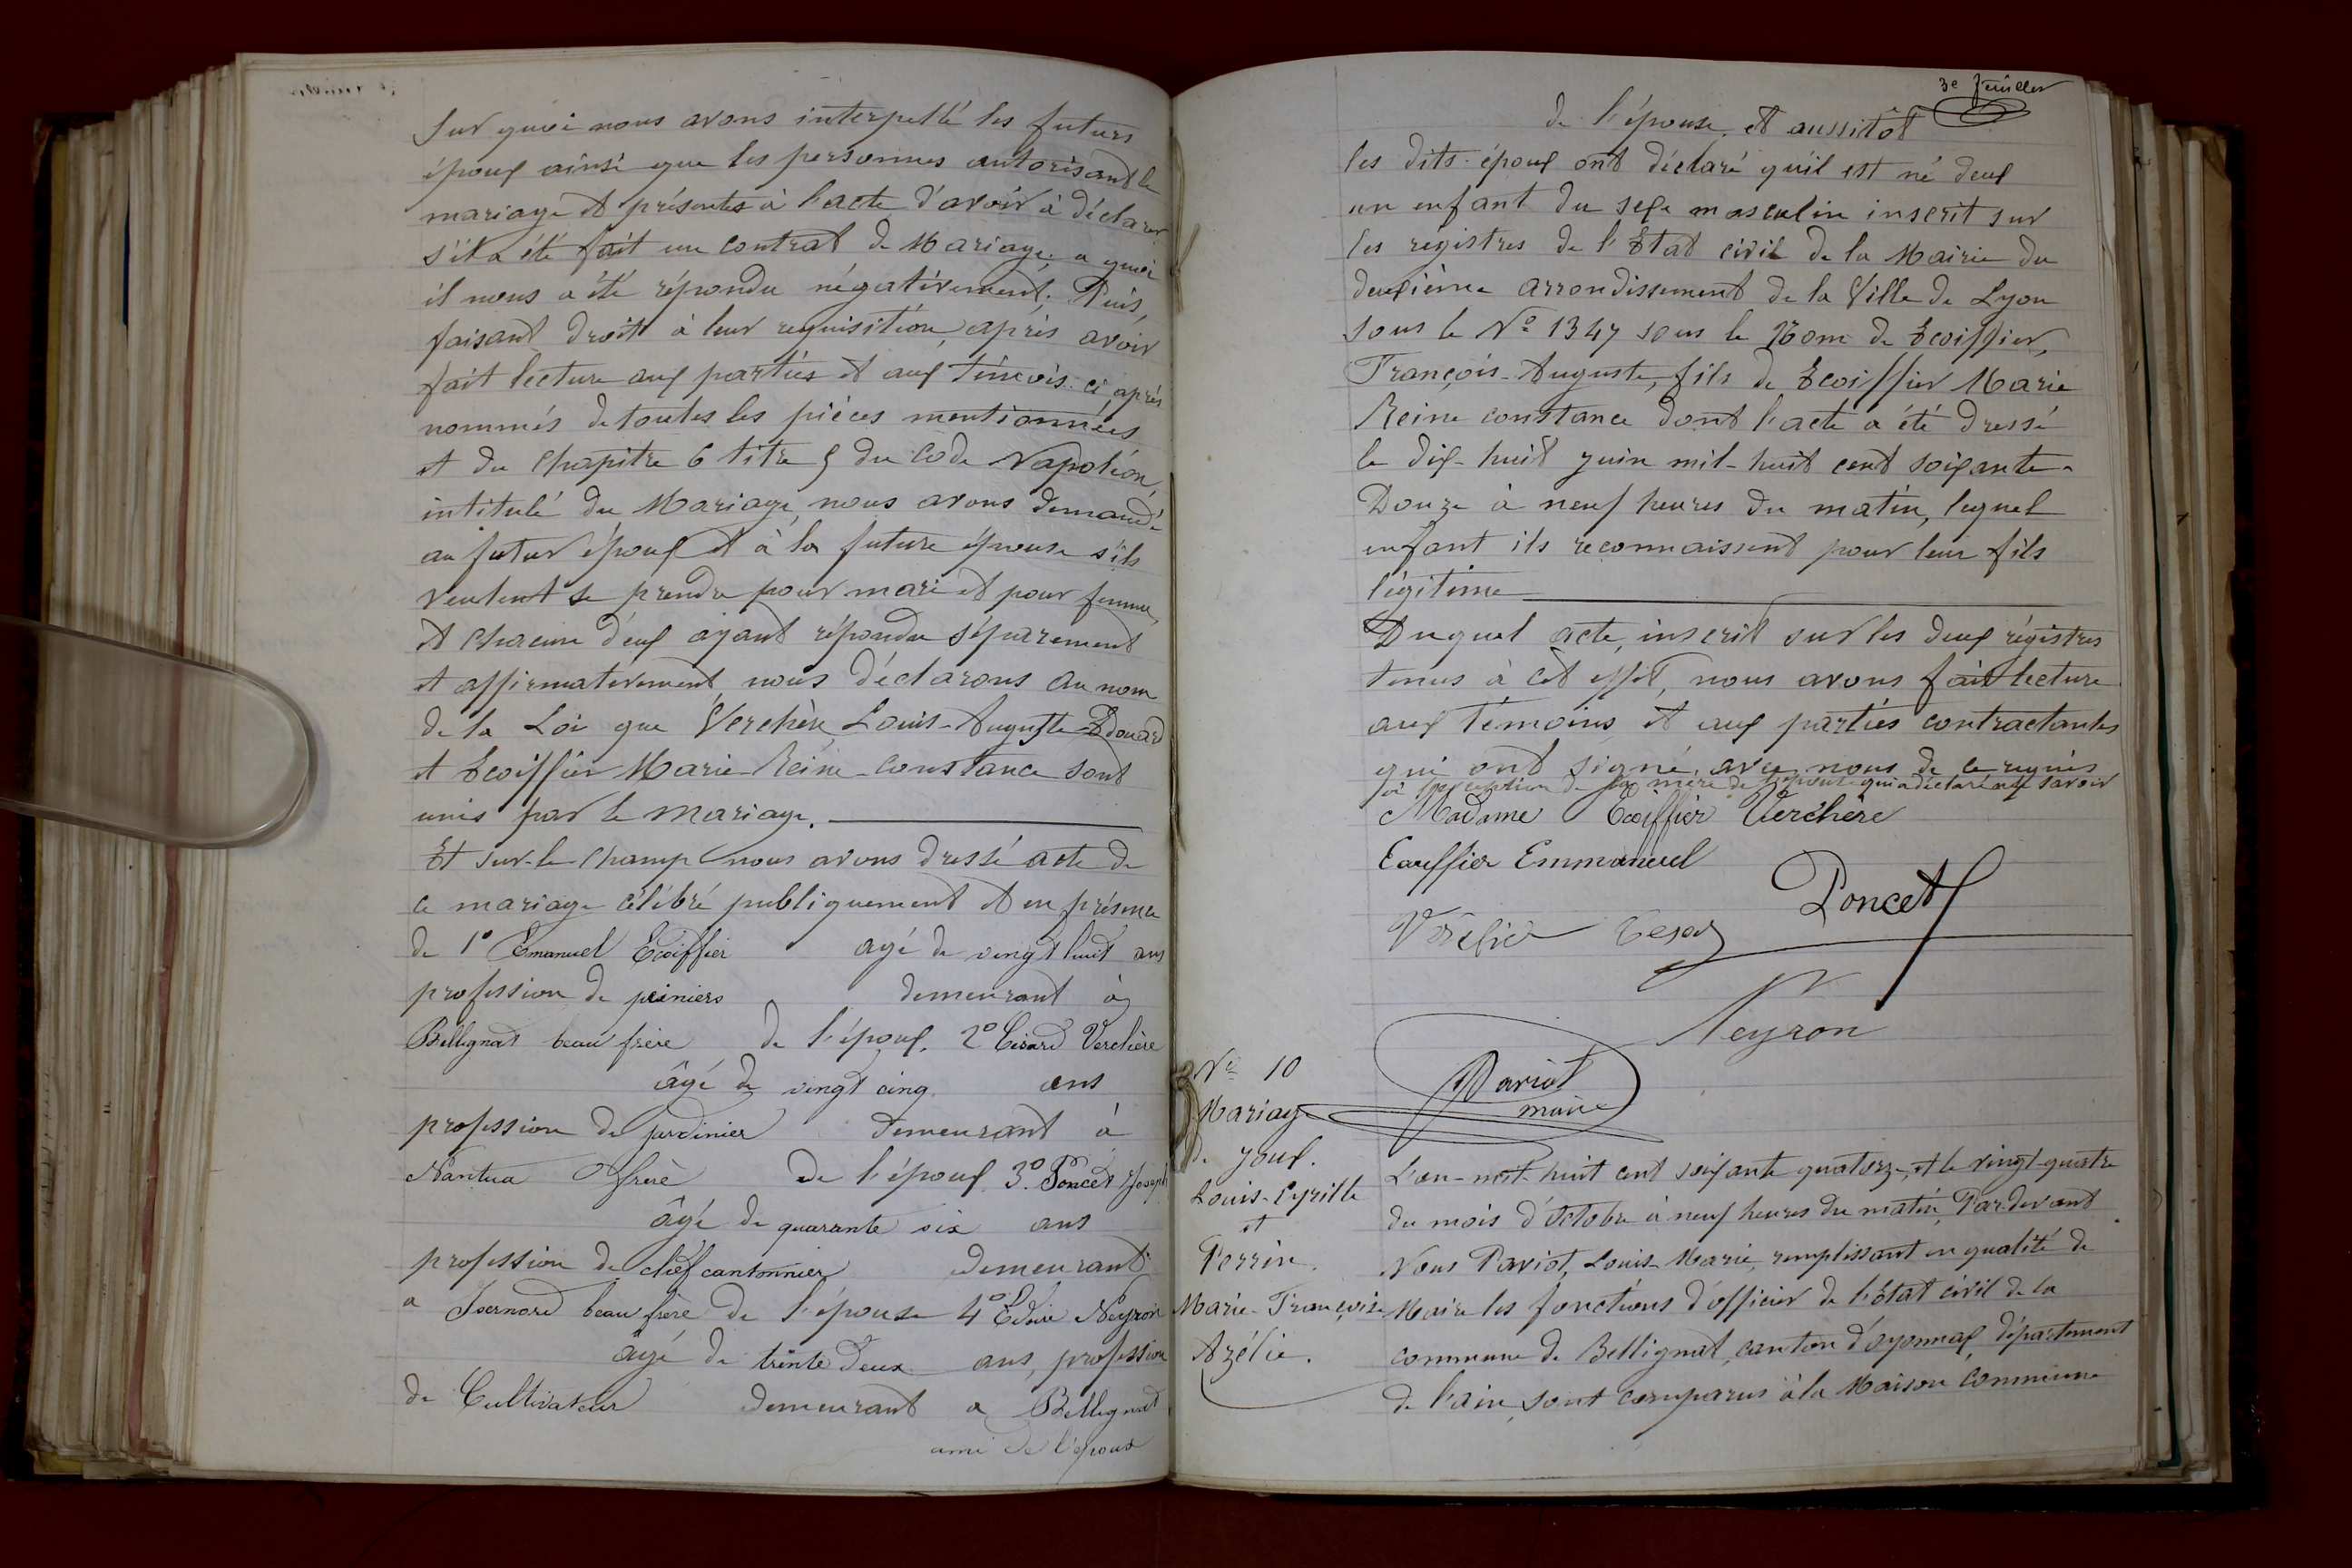 Sur quoi nous avons interpellé les futurs
époux ainsi que les personnes autorisant le
mariage et présentes à l'acte d'avoir à déclarer
s'il a été fait un contrat de Mariage, a quoi
il nous a été répondu négativement; Puis,
faisant droit à leur requisition, après avoir
fait lecture aux parties et aux témoins ci après
nommés de toutes les pièces mentionnées
et du Chapitre 6 titre 5 du Code Napoléon,
intitulé du Mariage, nous avons demandé
au futur époux et à la future épouse s'ils
veulent se prendre pour mari et pour femme,
et chacun d'eux ayant répondu séparement
et affirmativement, nous déclarons au nom
de la Loi que Verchère, Louis-Auguste Edouard
et Ecoiffier Marie-Reine-Constance sont
unis par le mariage.
Et sur-le-champ nous avons dressé acte de
ce mariage célébré publiquement et en présence
de 1° Emanuel Ecoiffier agé de vingt huit ans
profession de demeurant à
Bellignat beau frère de l'époux, 2° Verchère
âgé de vingt cinq ans
profession de jardinier demeurant à
Nantua frère de l'époux 3° Poncet Joseph
âgé de quarante six ans
profession de chef cantonnier demeurant
a Isernore beau frère de l'épouse 4° Neyron
agé de trente deux ans, profession
de Cultivateur demeurant a Bellignat
ami de l'époux
3e feuillet
de l'épouse, et aussitôt
les dits-époux ont déclaré qu'il est né d'eux
un enfant du sexe masculin inscrit sur
les régistres de l'Etat civil de la Mairie du
deuxième arrondissement de la Ville de Lyon
sous le N° 1347 sous le Nom de Ecoiffier,
François-Auguste, fils de Ecoiffier Marie
Reine constance dont l'acte a été dressé
le dix-huit juin mil-huit cent soixante-
Douze à neuf heures du matin, lequel
enfant ils reconnaissent pour leur fils
légitime
Duquel acte, inscrit sur les deux régistres
tenus à cet effet, nous avons fait lecture
aux témoins et aux parties contractantes
qui ont signé, avec nous de ce requis
à l'exception de la mère de l'épouse qui a déclaré ne savoir
Madame Ecoiffier Verchère
Ecoiffier Emmanuel
Poncet
Neyron
Pariot
maire
N° 10
Mariage
de Joux.
Louis-Cyrille
et
Perrin.
Marie-Françoise
Azélie.
L'an-mil-huit cent soixante quatorze, et le vingt-quatre
du mois d'Octobre à neuf heures du matin, Par-devant
Nous Pariot, Louis-Marie, remplissant en qualité de
Maire les fonctions d'officier de l'Etat civil de la
commune de Bellignat, canton d'oyonnax, département
de l'ain, sont comparus à la Maison Commune